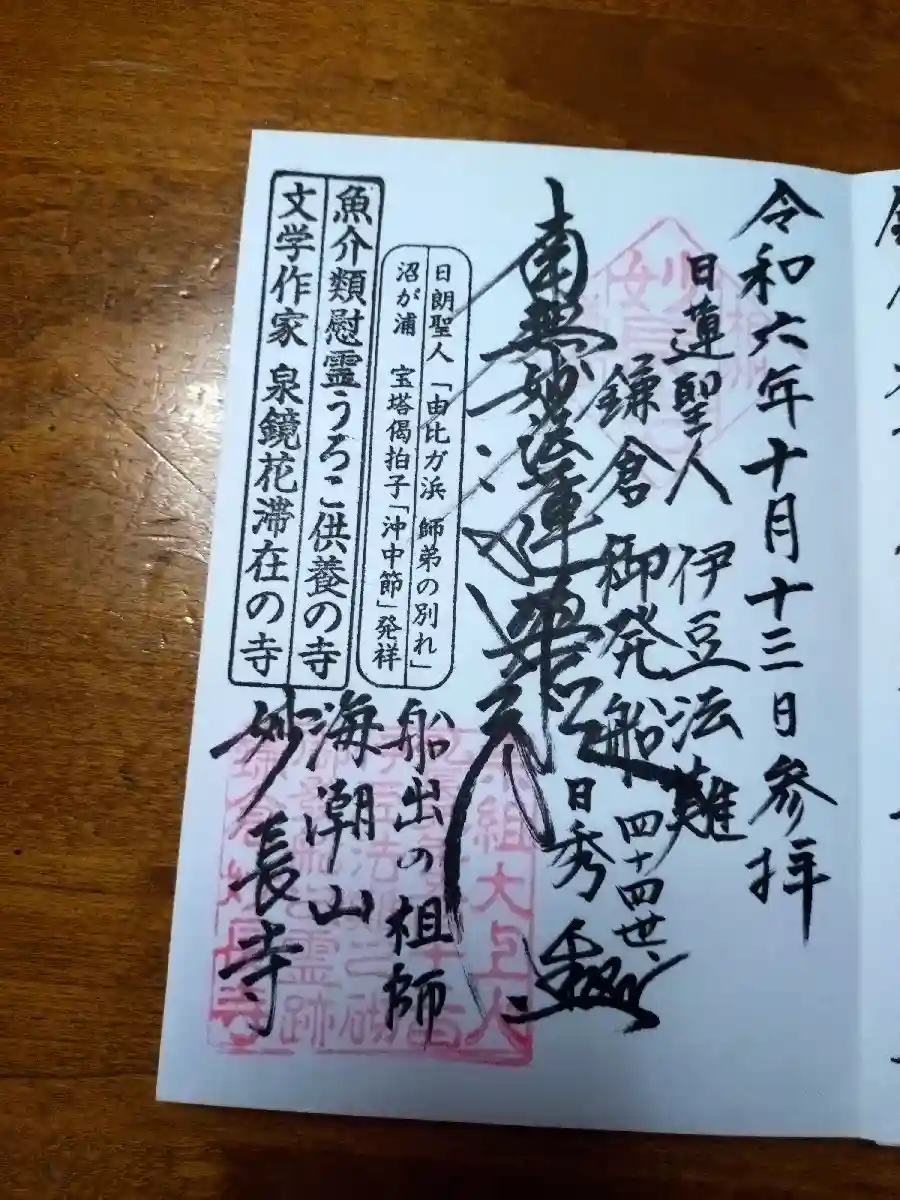 令和六年十月十三日参拝
日蓮聖人 伊豆法難
鎌倉 御発船 四十四世
日秀
南無妙法蓮華経
日朗聖人「由比ガ浜 師弟の別れ」
沼が浦 宝塔偈拍子「沖中節」発祥
船出の祖師
魚介類慰霊うろこ供養の寺
文学作家 泉鏡花滞在の寺
海潮山
妙長寺